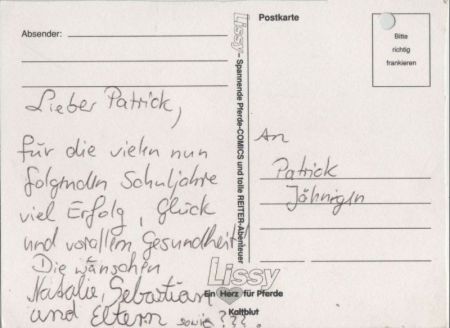 Absender:
Lieber Patrick,
für die vielen nun
folgenden Schuljahre
viel Erfolg, Glück
und vorallem Gesundheit!
Die wünschen
Natalie, Sebastian
und Eltern sowie ???
Lissy – Spannende Pferde-COMICS und tolle REITER-Abenteuer
Postkarte
Bitte
richtig
frankieren
An
Patrick
Jähnigen
Lissy
Ein Herz für Pferde
Kaltblut